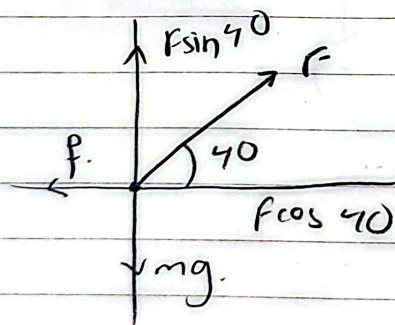 Fsin40
F
f.
40
Fcos 40
mg.